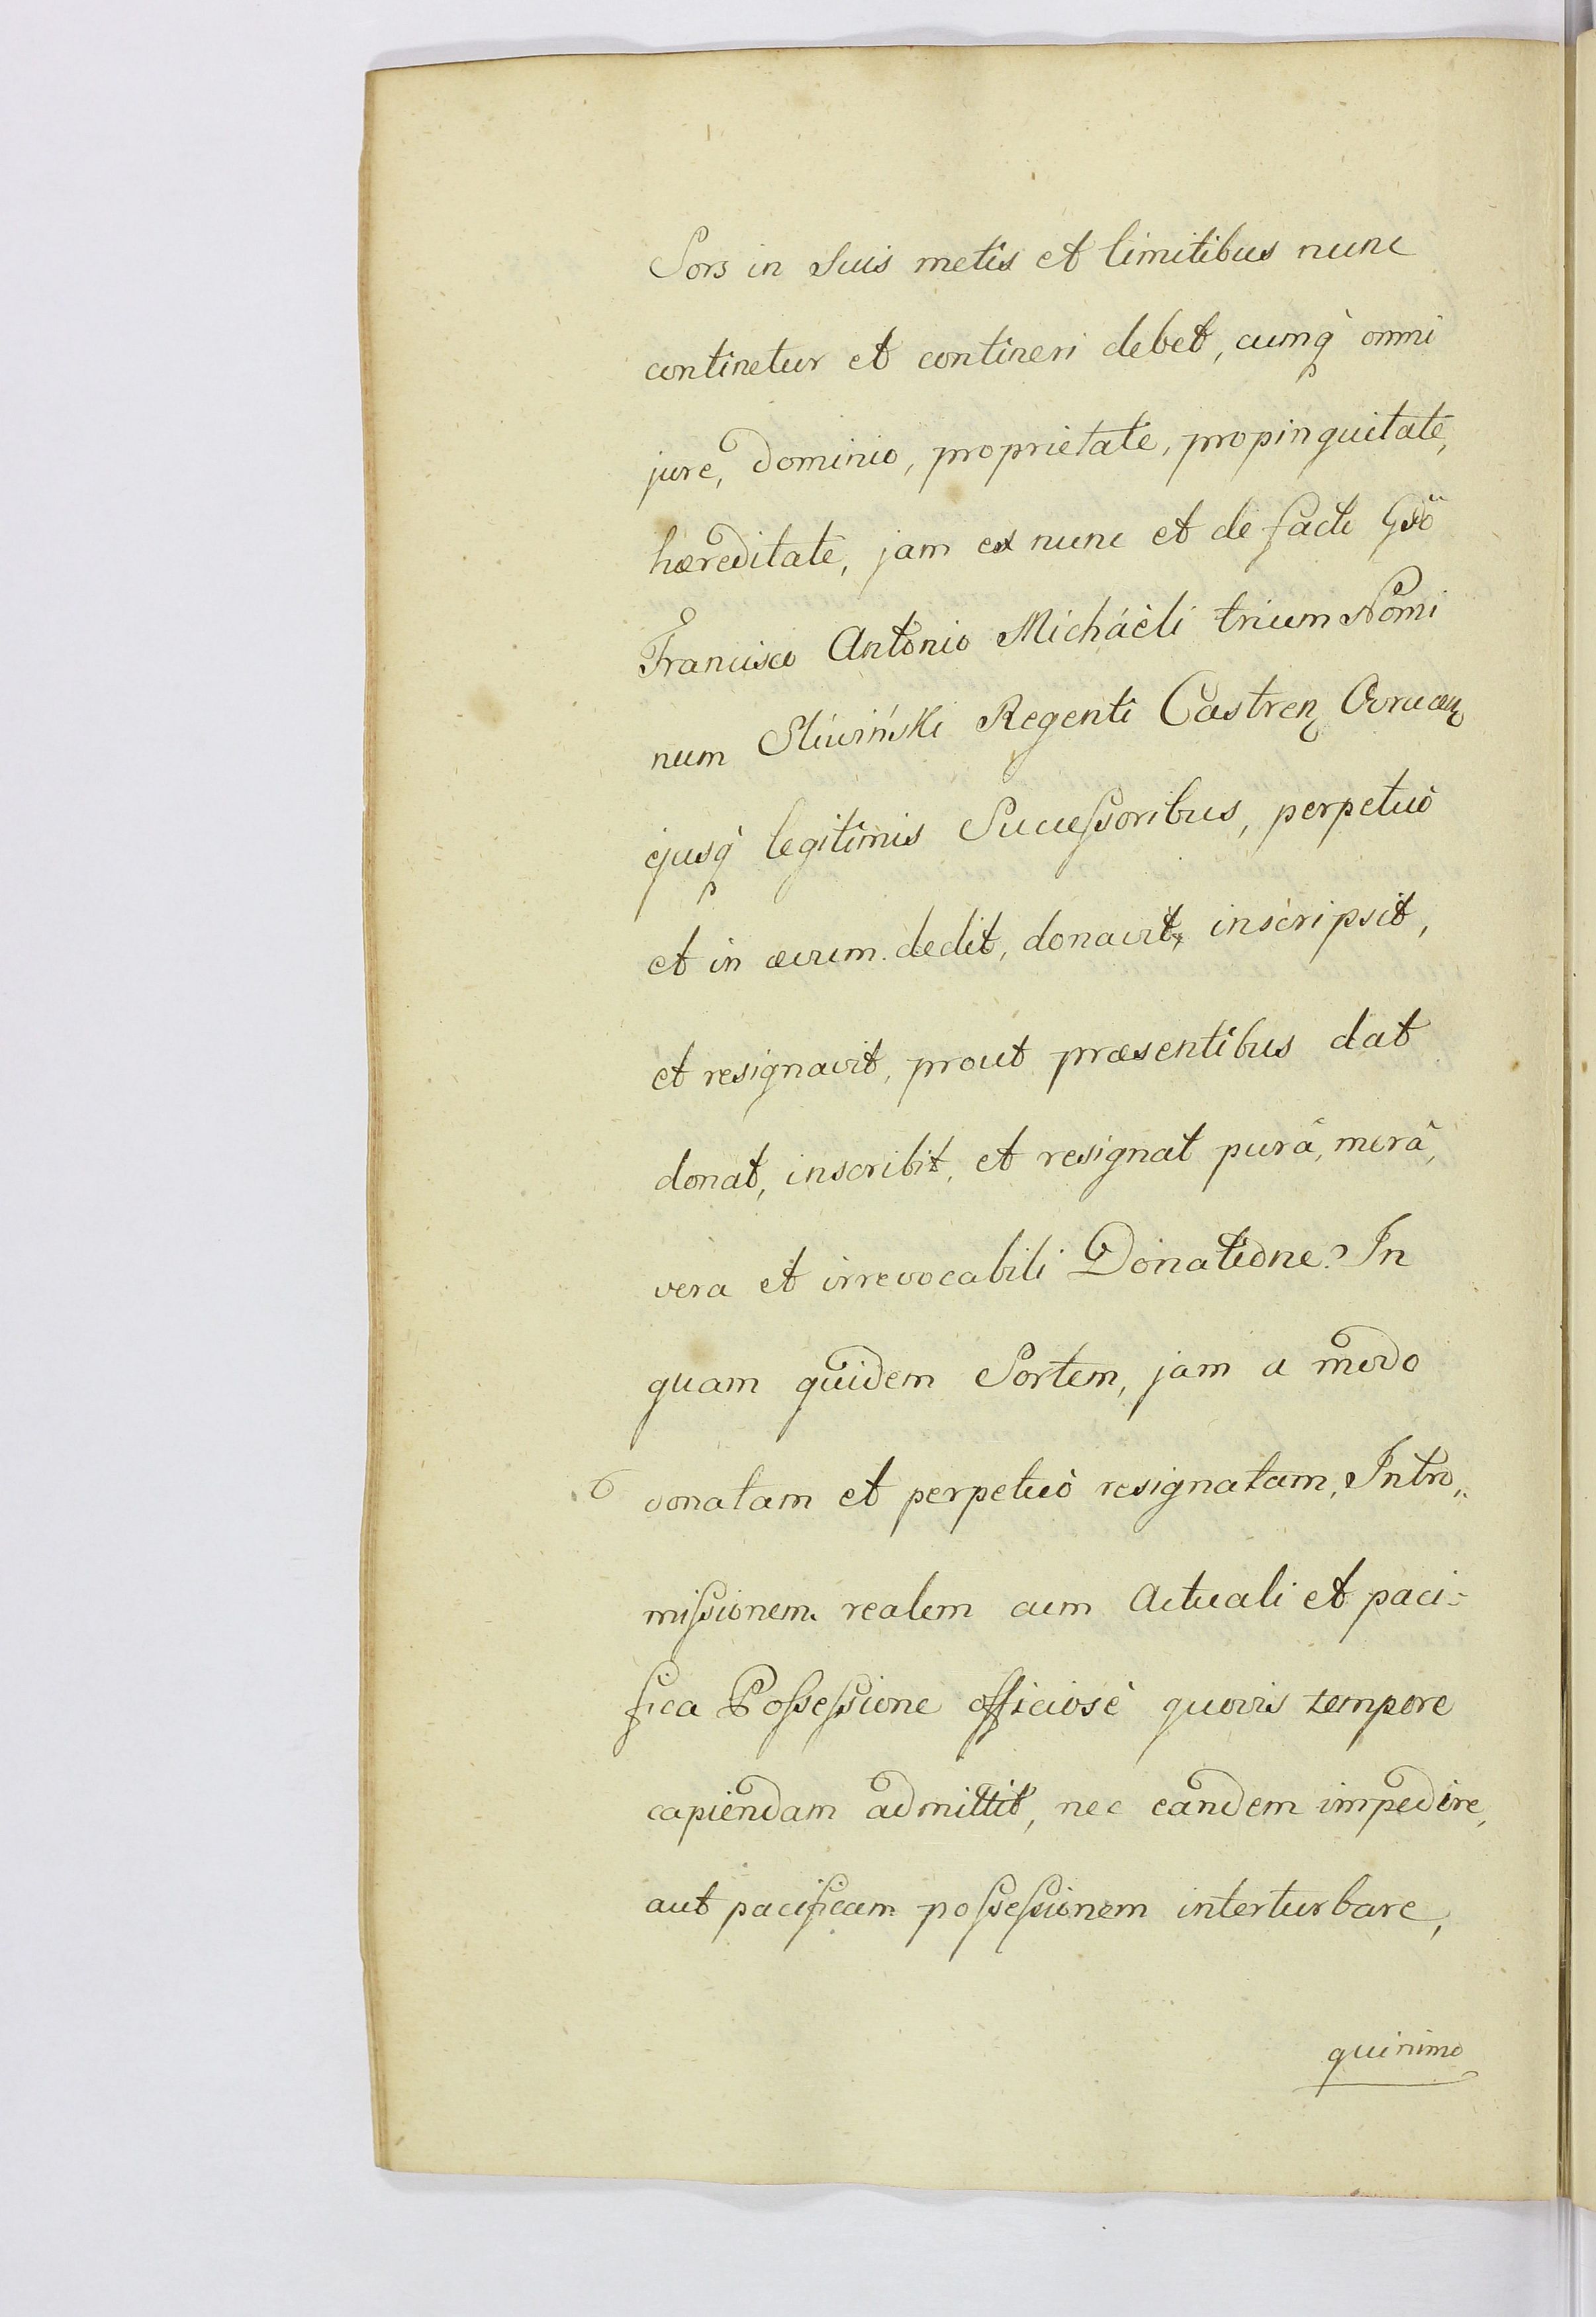 Sors in suis metis et limitibus nunc
continetur et contineri debet, cumq̀ omni
jure, dominio, proprietate, propinquitate,
hæreditate, jam ex nunc et de facto Gsō
Francisco Antonio Michaèli trium Nomi
num Sliwiński Regenti Castren Owrucen
ejusq̀ legitimis Successoribus, perpetuò
et in ævum dedit, donavit, inscripsit,
et resignavit, prout præsentibus dat
donat, inscribit, et resignat purâ, merâ,
vera et irrevocabili Donatione. In
quam quidem Sortem, jam a modo
donatam et perpetuò resignatam, Intro„
missionem realem cum Actuali et paci-
fica Possessione officiosè quovis tempore
capiendam admittit, nec eandem impedire,
aut pacificam possessionem interturbare,
quinimo